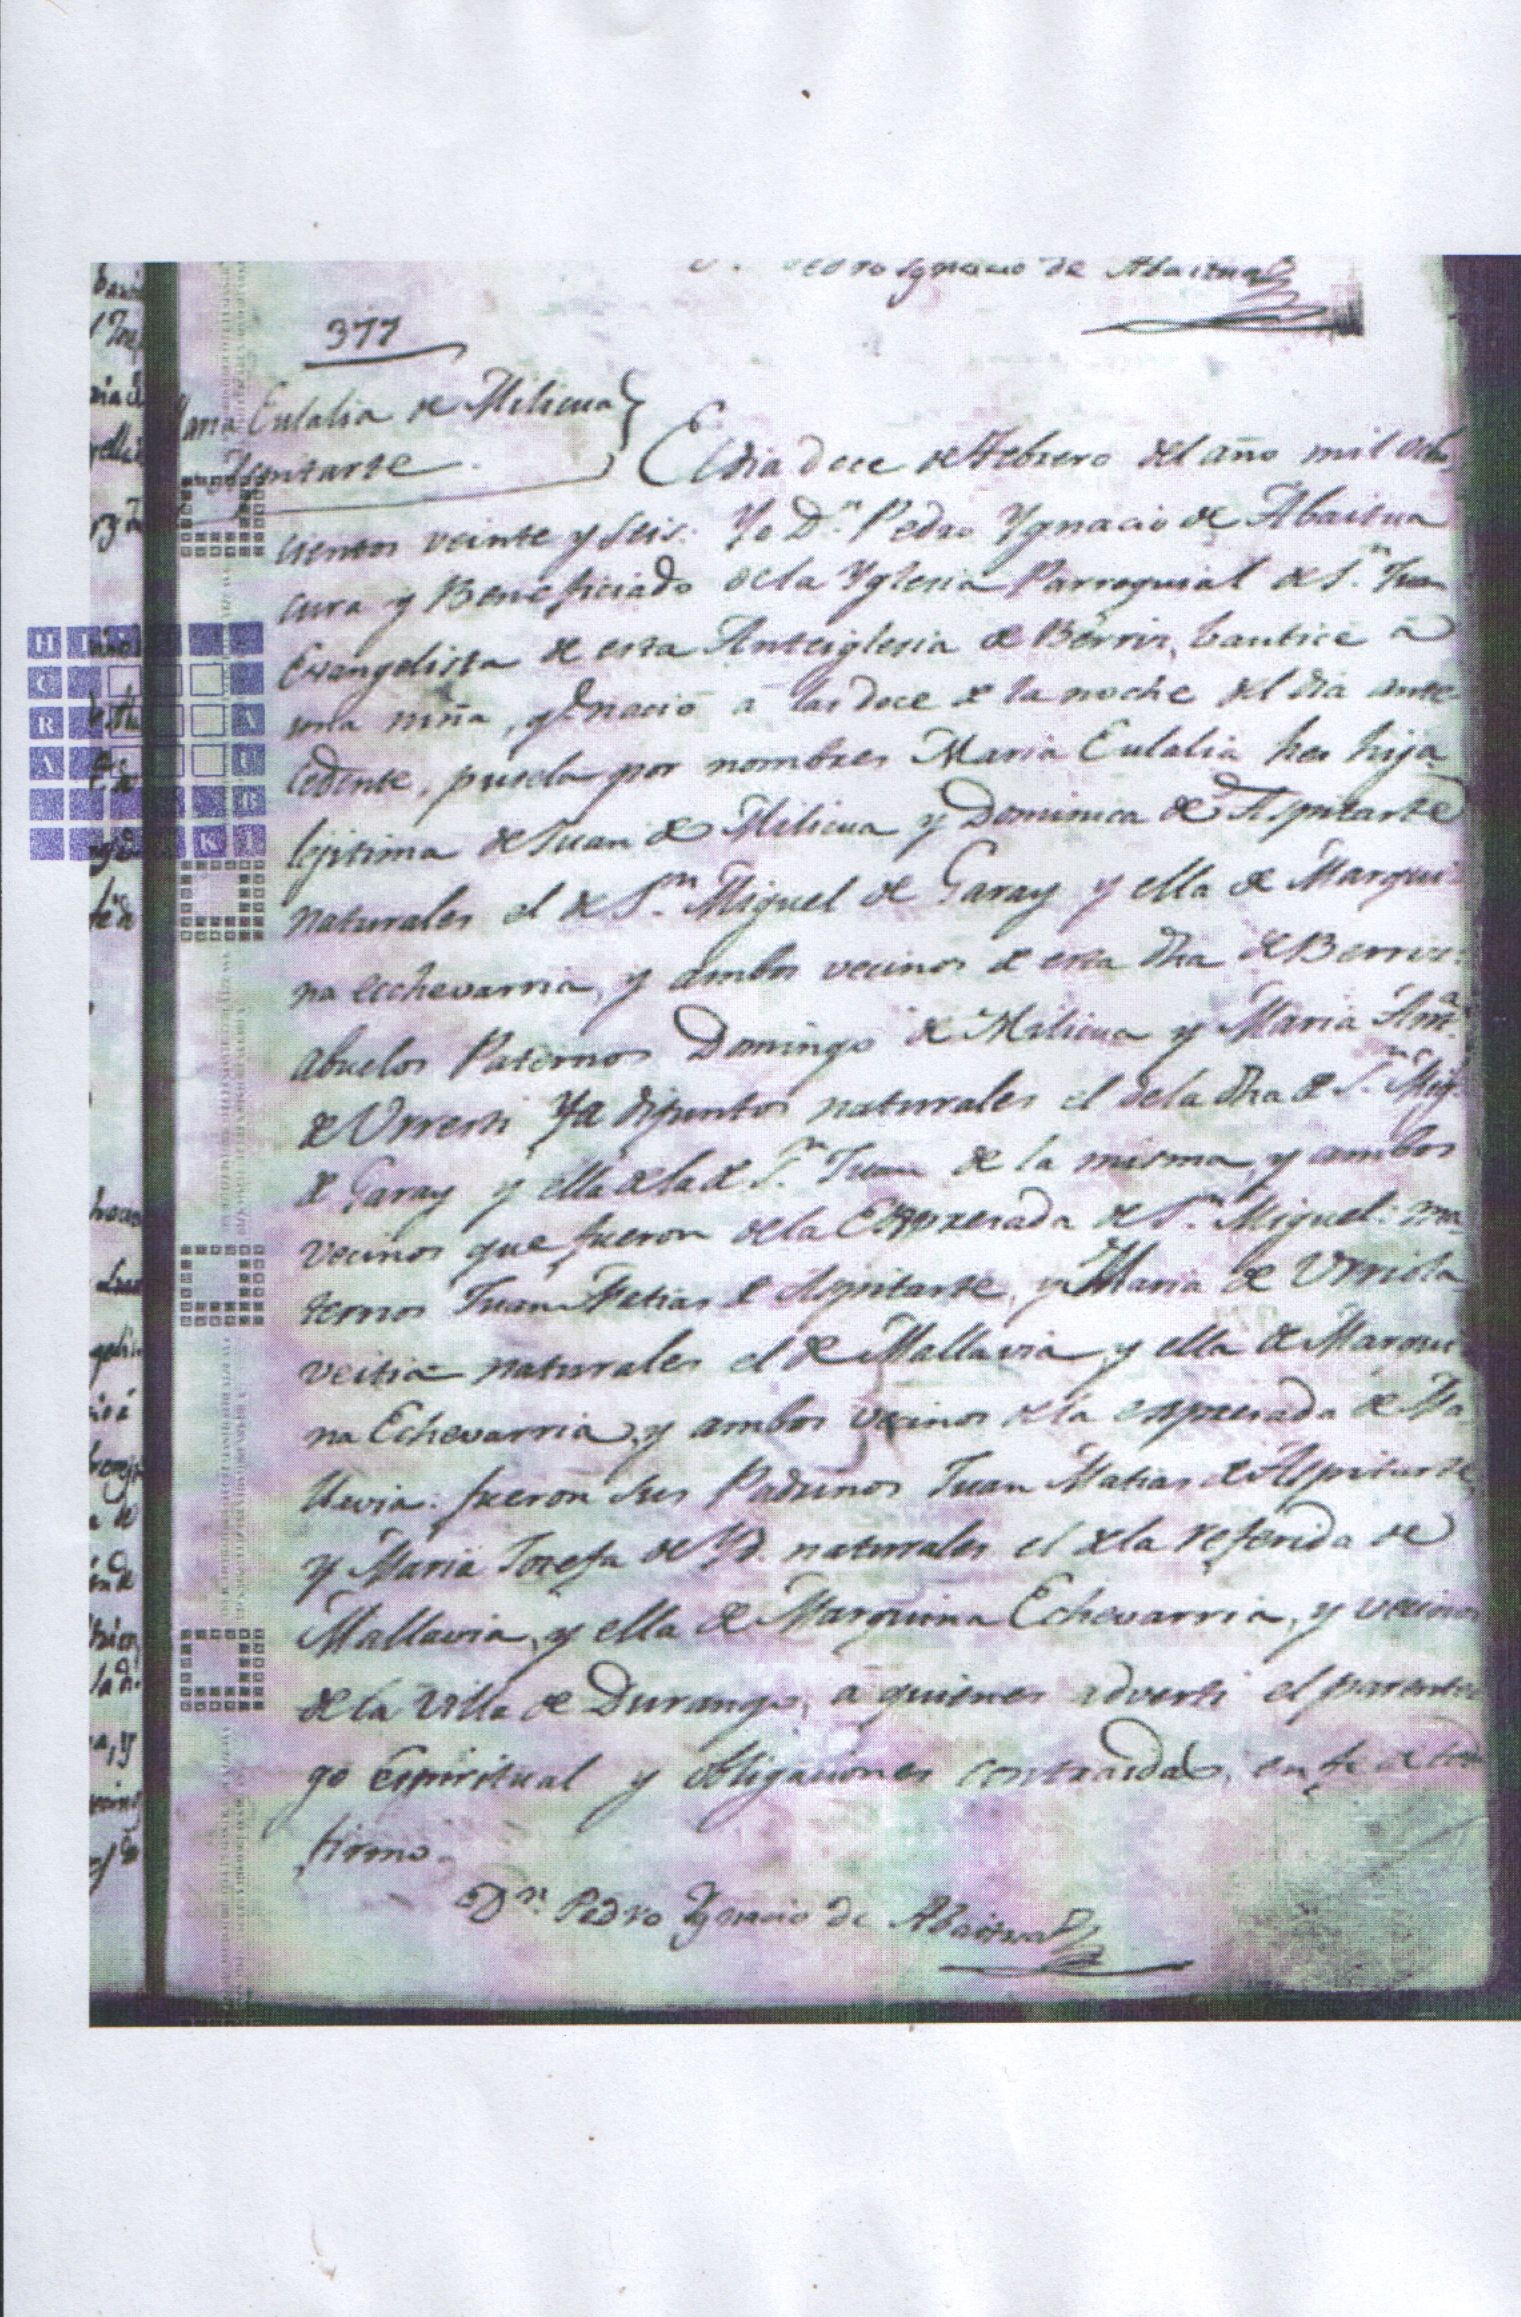 Pedro Ygnacio de Abaitua
377
Maria Eulalia de Milicua
Aspitarte.
El dia doce de Febrero del año mil ocho
cientos veinte y seis: Yo Dn. Pedro Ygnacio de Abaitua
cura y Beneficiado de la Yglesia Parroquial de Sn. Juan
Evangelista de esta Anteiglesia de Berriz, bautice â
una niña, q nació â las doce de la noche del dia ante
cedente, pusela por nombres Maria Eulalia hes hija
lejitima de Juan de Milicua y Dominica de Aspitarte
naturales el de Sn. Miguel de Garay y ella de Marqui
na Echevarria, y ambos vecinos de esta dha de Berriz:
abuelos Paternos Domingo de Milicua y Maria Anta.
de Urresti Ya difuntos naturales el de la dha de Sn. Migl.
de Garay y ella de la de Sn. Juan de la misma, y ambos
vecinos que fueron de la Expresada de Sn. Miguel: ma
ternos Juan Matias de Aspitarte, y Maria de Urriola
veitia naturales el de Mallavia, y ella de Marqui
na Echevarria, y ambos vecinos de la expresada de Ma
llavia: fueron sus Padrinos Juan Matias de Aspitarte,
y Maria Josefa de Yd. naturales el de la referida de
Mallavia, y ella de Marquina Echevarria, y vecinos
de la Villa de Durango, a quienes adverti el parentes
go Espiritual y obligaciones contraidas, en fe de lo
firmo.
Dn. Pedro Ygnacio de Abaitua